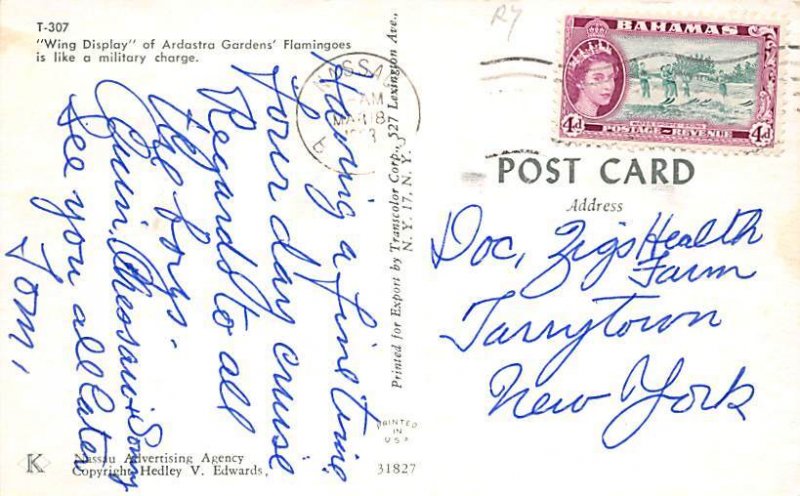 T-307
"Wing Display" of Ardastra Gardens' Flamingoes
is like a military charge.
Having a fine time
four day cruise
Regards to all
the boys.
see you all later
Tom,
Printed for Export by Transcolor Corp., 527 Lexington Ave.,
N. Y. 17, N. Y.
PRINTED
IN
U S A
31827
K
Nassau Advertising Agency
Copyright Hedley V. Edwards,
NASSAU
AM
MAR 18
BAHAMAS
4d
POSTAGE REVENUE
4d
POST CARD
Address
Doc, Zigs Health
Farm
Tarrytown
New York